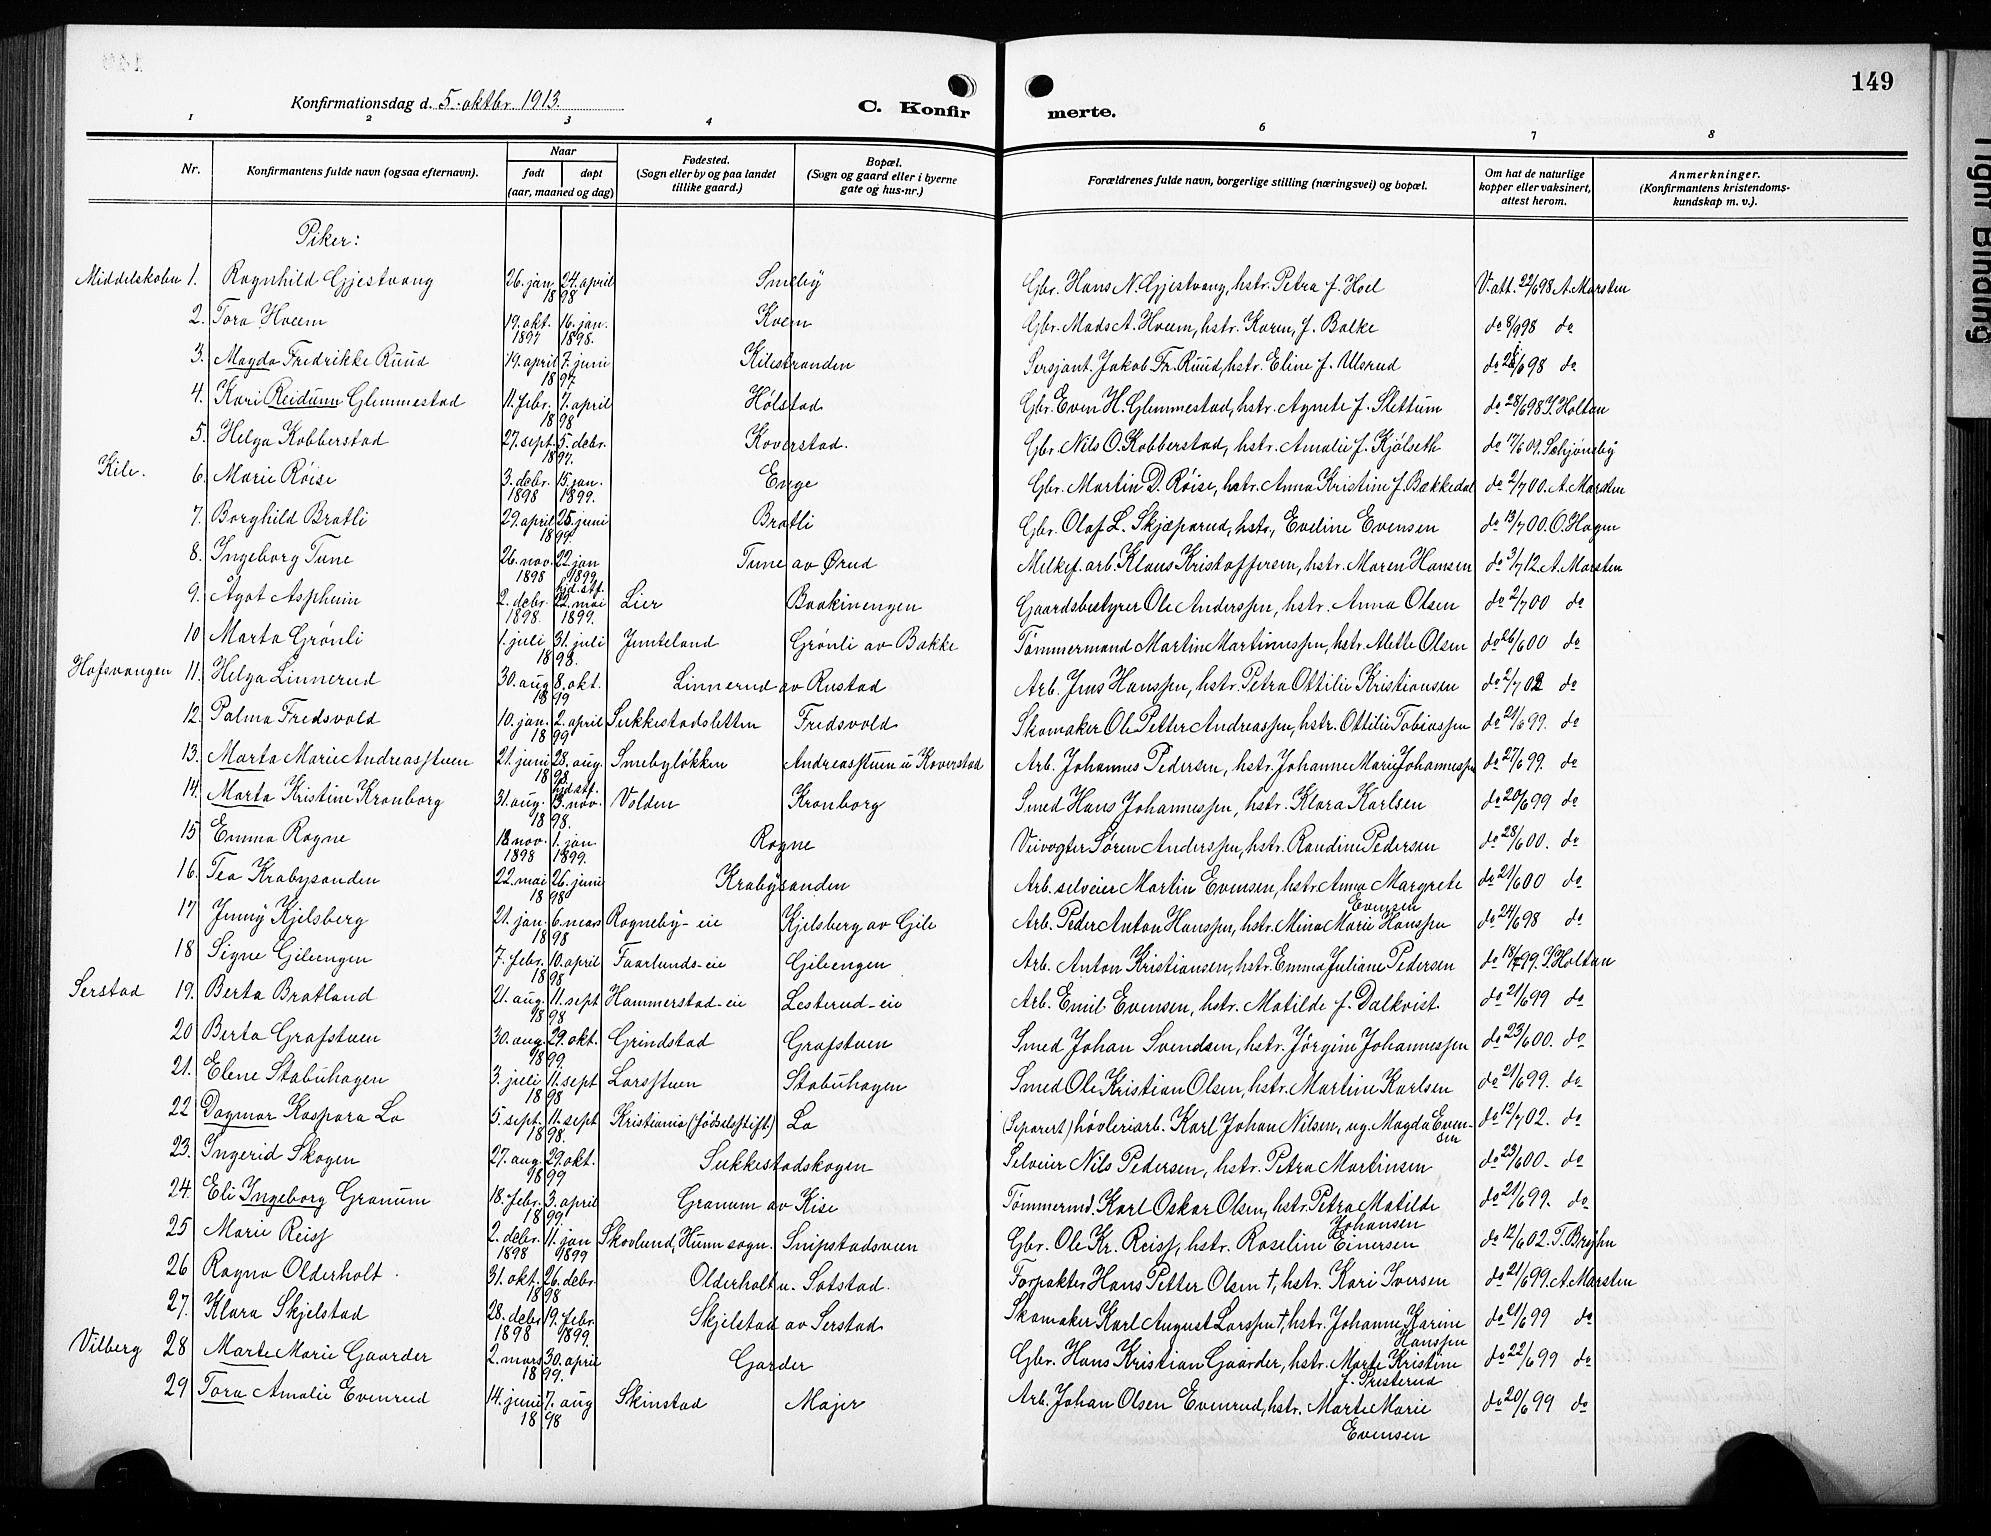 149
Konfirmationsdag d. 5. oktbr. 1913.
C. Konfir merte.
1 2 3 4 6 7 8
Nr. Konfirmantens fulde navn (ogsaa efternavn). Naar født døpt (aar, maaned og dag) Fødested. (Sogn eller by og paa landet tillike gaard.) Bopæl. (Sogn og gaard eller i byerne gate og hus-nr.) Forældrenes fulde navn, borgerlige stilling (næringsvei) og bopæl. Om hat de naturlige kopper eller vaksinert, attest herom. Anmerkninger. (Konfirmantens kristendoms-kundskap m. v.).
Piker:
Middelskolen 1. Ragnhild Gjestvang 26. jan. 24. april 1898 Smeby Gbr. Hans N. Gjestvang, hstr. Petra f. Hoel V. att. 22/6 98 A. Marsten
2. Tora Hveem 19. okt. 1897 16. jan. 1898. Kvem Gbr. Mads A. Hveem, hstr. Karen, f. Balke do 8/9 98 do
3. Magda Fredrikke Ruud 19. april 7. juni 1897. Kilestranden Sersjant. Jakob Fr. Ruud, hstr. Eline f. Ulsrud do 28/6 98 do
4. Kari Reidunn Glemmestad 11. febr. 7. april 1898 Hølstad Gbr. Even H. Glemmestad, hstr. Agnete f. Slettum do 28/6 98 S. Holtan
5. Helga Kobberstad 27. sept. 5. debr. 1897. Koverstad. Gbr. Nils O. Kobberstad, hstr. Amalie f. Kjølseth do 17/6 09. Schjønsby
Kile. 6. Marie Røise 3. debr. 1898 15. jan. 1899. Enge Gbr. Martin D. Røise, hstr. Anna Kristine f. Bækkedal do 2/7 00. A. Marsten
7. Borghild Bratli 29. april 25. juni 1899. Bratli Gbr. Olaf L. Skjæparud, hstr., Eveline Evensen do 13/7 00. O. Hagen
8. Ingeborg Tune 26. nov. 1898 22. jan 1899 Tune av Ørud Melkef. arb. Klaus Kristoffersen, hstr. Maren Hansen do 3/7 12 A. Marsten
9. Ågot Aspheim 2. debr. 1898. hjd. stf. 22. mai 1899. Lier Baakinengen Gaardsbestyrer Ole Anderssen, hstr. Anna Olsen do 2/7 00 do
10 Marta Grønli 1. juli 31. juli 1898. Jemteland Grønli av Bakke Tømmermand Martin Martinussen, hstr. Alette Olsen do 26/6 00 do
Hofsvangen 11. Helga Linnerud 30. aug 8. okt. 1899 Linnerud av Rustad Arb. Jens Hanssen, hstr. Petra Ottilie Kristiansen do 2/7 02 do
12. Palma Fredsvold 10. jan. 2. april 1899 Sukkestadsletten Fredsvold Skomaker Ole Petter Andreassen, hstr. Ottilie Tobiassen do 21/6 99. do
13. Marta Marie Andreasstuen 21. juni 28. aug. 1898 Smebyløkken Andreasstuen u. Koverstad Arb. Johannes Pedersen, hstr. Johanne Marie Johannessen do 27/6 99. do
14. Marta Kristine Kronborg 31. aug. hjd. stf. 13. nov. 1898. Volden Kronborg Smed Hans Johannessen, hstr. Klara Karlsen do 20/6 99 do
15 Emma Rogne 18 nov. 1898 1. jan. 1899. Rogne Veivogter Søren Anderssen, hstr. Randine Pedersen do 28/6 00. do
16. Tea Krabysanden 22. mai 26. juni 1898 Krabysanden Arb. selveier Martin Evensen, hstr. Anna Margrete Evensen do 21/6 00 do
17 Jenny Kjelsberg 21. jan. 6. mars 1898 Rogneby-eie Kjelsberg av Gile Arb. Peder Anton Hanssen, hstr. Mina Marie Hanssen do 24/6 98 do
18 Signe Gileengen 7. febr. 10. april 1898 Faarlunds-eie Gileengen Arb. Anton Kristiansen, hstr. Emma Juliane Pedersen do 18/7 99. S. Holtan
Serstad 19. Berta Bratland 21. aug. 11. sept 1898 Hammerstad-eie Lesterud-eie Arb. Emil Evensen, hstr. Matilde f. Dalkvist. do 21/6 99 do
20 Berta Grafstuen 30. aug. 29. okt. 1899. Grindstad Grafstuen Smed Johan Svendsen, hstr. Jørgine Johannessen do 23/6 00. do
21. Elene Stabuhagen 3. juli 11. sept 1898 Larsstuen Stabuhagen Smed Ole Kristian Olsen, hstr. Martine Karlsen do 21/6 99. do
22 Dagmar Kaspara Lo 5. sept. 11. sept 1898. Kristiania (fødselsstift.) Lo (Separert) høvleriarb. Karl Johan Nilsen, ug. Magda Evensen do 12/7 02. do
23. Ingerid Skogen 27. aug. 29. okt. 1899 Sukkestadskogen Selveier Nils Pedersen, hstr. Petra Martinsen do 23/6 00- do
24. Eli Ingeborg Granum 18. febr. 3. april 1899. Granum av Kise Tømmermd. Karl Oskar Olsen, hstr. Petra Matilde Johansen do 21/6 99. do
25 Marie Reiss 2. debr. 1898 11. jan 1899 Skovlund, Hunn sogn. Snipstadsveen Gbr. Ole Kr. Reiss, hstr. Roseline Einersen do 12/6 02. T. Bryhn
26 Ragna Olderholt 31. okt. 26. debr. 1898 Olderholt u. Sotstad. Forpakter Hans Petter Olsen †, hstr. Kari Iversen do 21/6 99. A. Marsten
27. Klara Skjelstad 28. debr 1898 19. febr. 1899. Skjelstad av Serstad Skomaker Karl August Larssen †, hstr. Johanne Karine Hanssen do 21/6 99 do
Vilberg 28 Marte Marie Gaarder 2. mars 30. april 1899. Garder Gbr. Hans Kristian Gaarder, hstr. Marte Kristine f. Presterud do 22/6 99 do
29 Tora Amalie Evenrud 14. juni 7. aug 1898 Skinstad Majer Arb. Johan Olsen Evenrud, hstr. Marte Marie Evensen do 20/6 99 do
Tight Binding